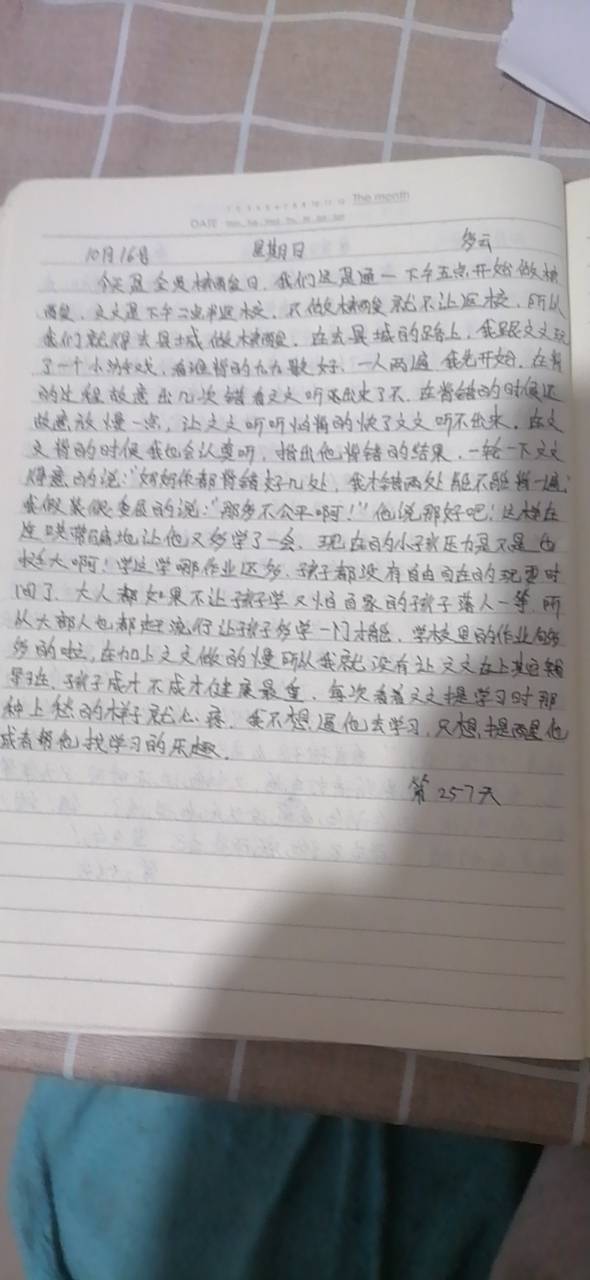 The month
DATE
10月16号 星期日 多云
今天是全员核酸日,我们这是通一下午五点开始做核
酸,文文是下午二点半返校,不做核酸就不让返校,所以
我们就得去县城做核酸,在去县城的路上,我跟文文玩
了一个小游戏,看谁背的九九歌好,一人两遍我先开始,在背
的过程故意出几次错看文文听出来了不,在背错的时候还
故意放慢一点,让文文听听怕背的快了文文听不出来,在文
文背的时候我也会认真听,指出他背错的结果,一轮一下文文
得意的说:"妈妈你都背错好几处,我才错两处能不能背一遍"
我假装很委屈的说:"那多不公平啊!"他说那好吧!这样在
连哄带骗地让他又多学了一会,现在的小孩压力是不是也
忒大啊!学这学那作业还多,孩子都没有自由自在的玩耍时
间了,大人都如果不让孩子学又怕自家的孩子落人一等,所
以大部人也都赶流行让孩子多学一门才能,学校里的作业够
多的啦,在加上文文做的慢所以我就没有让文文在上其它辅
导班,孩子成才不成才健康最重,每次看着文文提学习时那
种上愁的样子就心疼,我不想逼他去学习,只想提醒他
或者帮他找学习的乐趣.
第257天